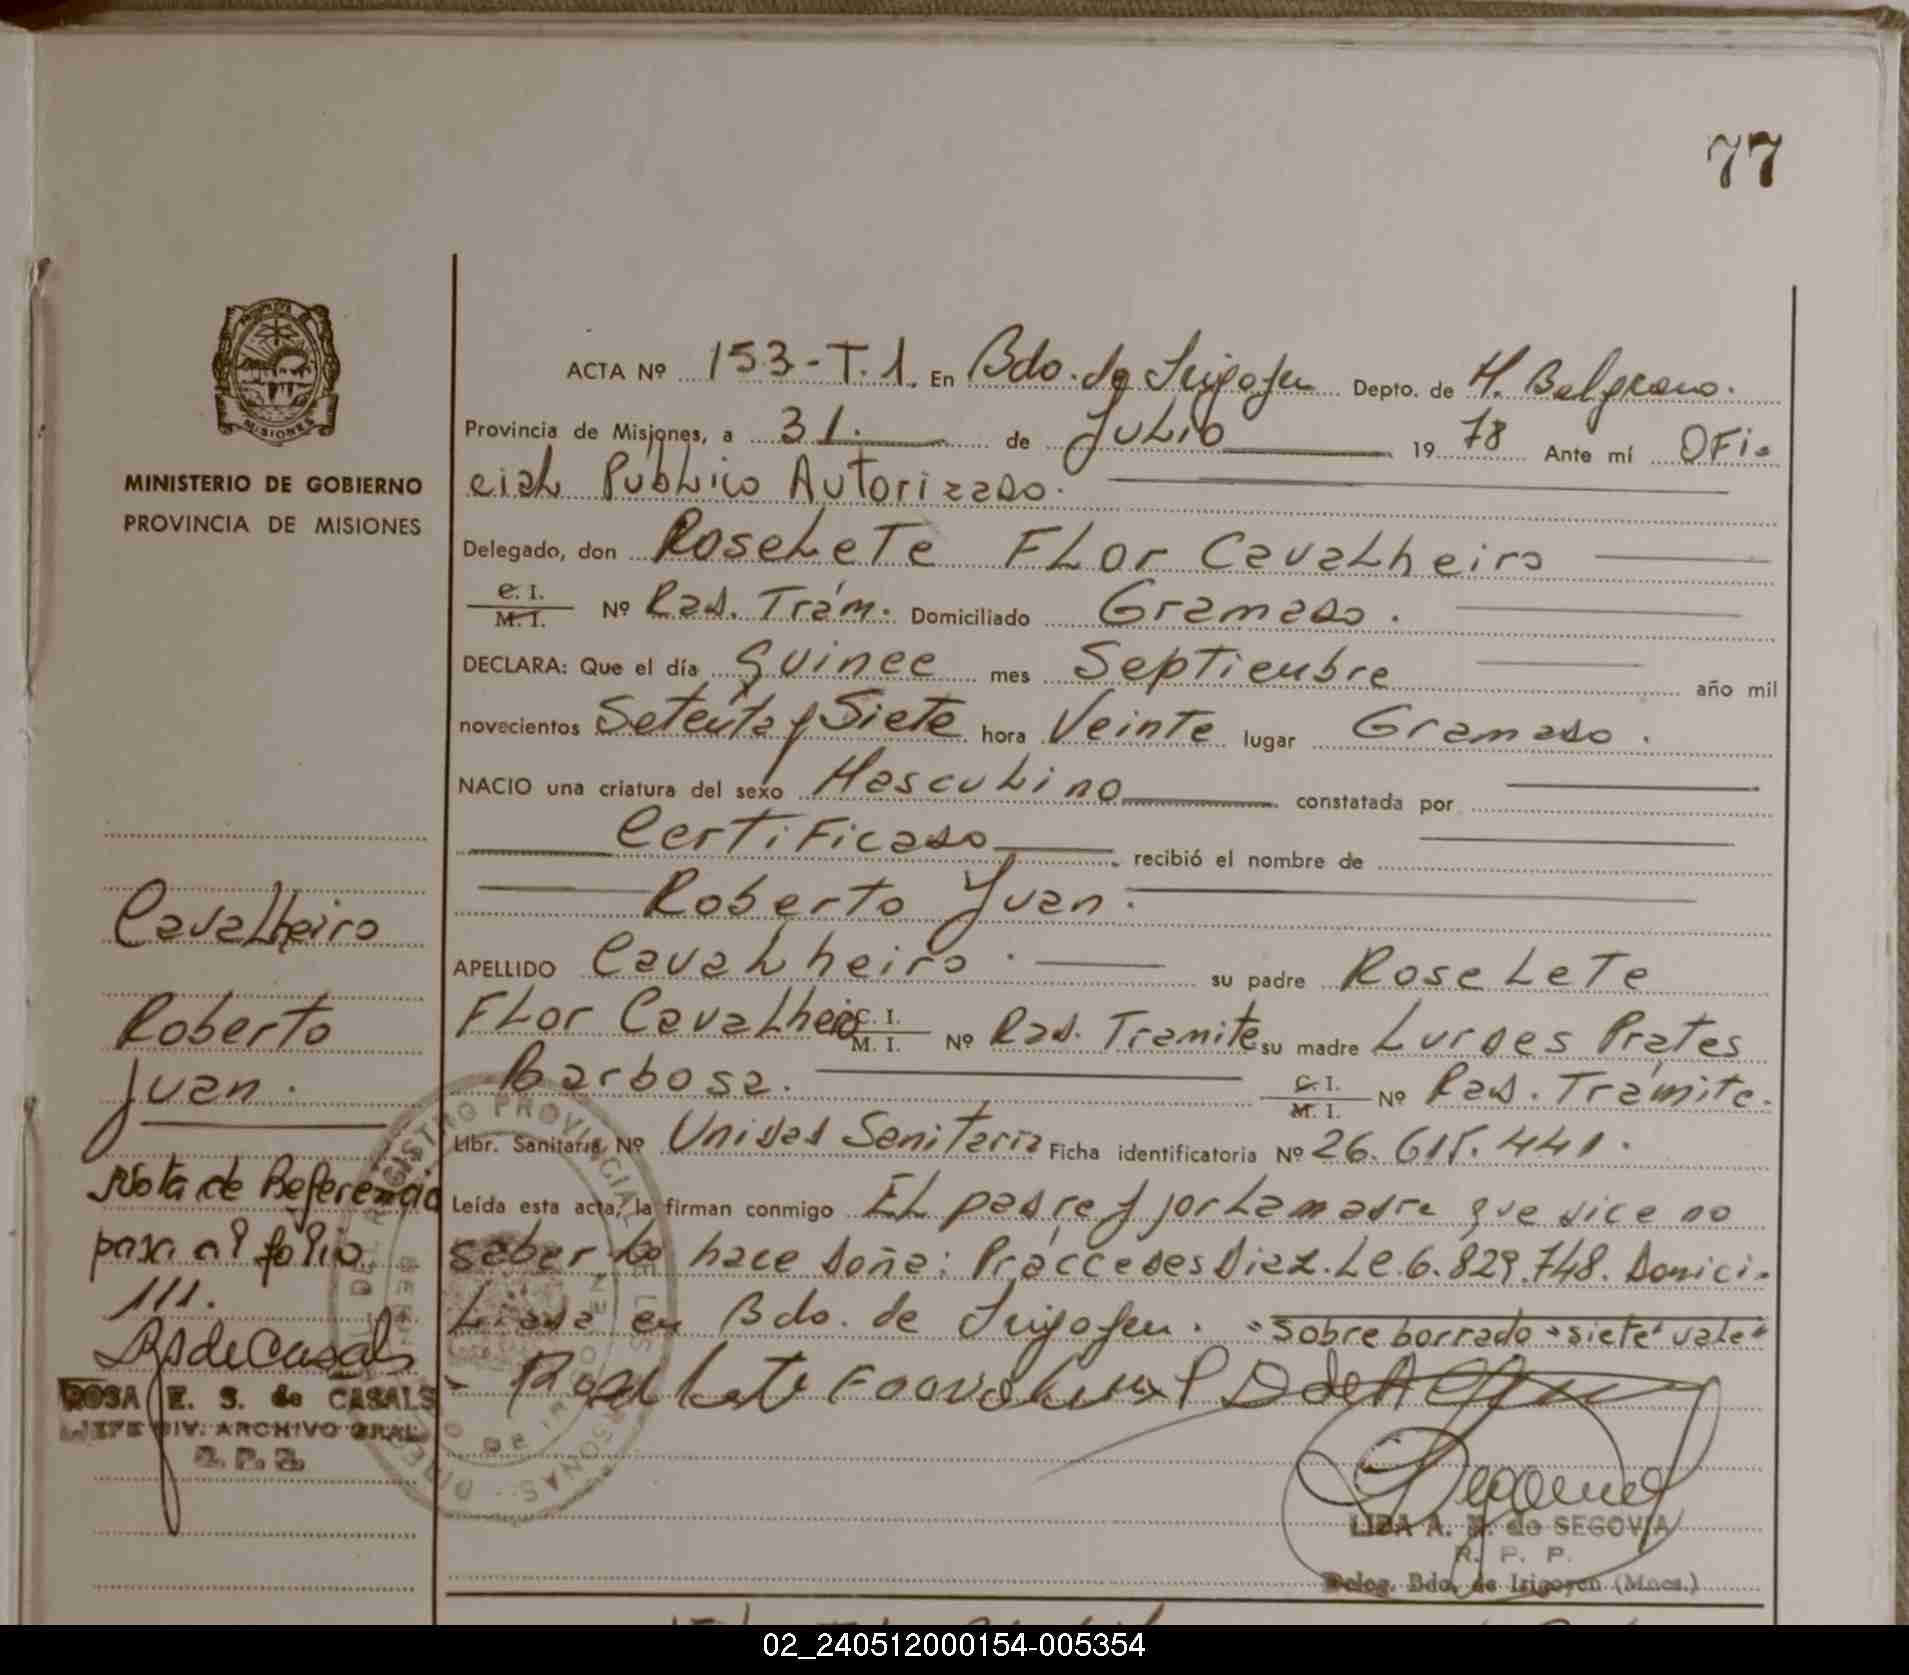 77
MISIONES
MINISTERIO DE GOBIERNO
PROVINCIA DE MISIONES
ACTA Nº 153-T.1. En Bdo. de Irigoyen Depto. de M. Belgrano.
Provincia de Misiones, a 31. de Julio 1978 Ante mí OFi-
cial Público Autorizado.
Delegado, don Roselete Flor Cavalheiro
C. I.
M. I. Nº Rad. Trám. Domiciliado Gramado.
DECLARA: Que el día quince mes Septiembre año mil
novecientos Setenta y Siete hora Veinte lugar Gramado.
NACIO una criatura del sexo Masculino constatada por
Certificado recibió el nombre de
Roberto Juan.
APELLIDO Cavalheiro. su padre Roselete
Flor Cavalheiro C. I. M. I. Nº Rad. Tramite su madre Lurdes Prates
Barbosa. C. I. M. I. Nº Rad. Trámite.
Libr. Sanitaria Nº Unidad Sanitaria Ficha identificatoria Nº 26.615.441.
Leída esta acta, la firman conmigo El padre y por la madre que dice no
saber lo hace doña: Díaz. LE 6.829.748. Domici-
liada en Bdo. de Irigoyen. "sobre borrado "siete" vale"
LIDA A. N. de SEGOVIA
R. P. P.
Deleg. Bdo. de Irigoyen (Mnes.)
Cavalheiro
Roberto
Juan.
Nota de Referencia
pasa al folio
111.
RSdeCasals
ROSA E. S. de CASALS
JEFE DIV. ARCHIVO GRAL.
R. P. P.
REGISTRO PROVINCIAL DE LAS PERSONAS
02_240512000154-005354